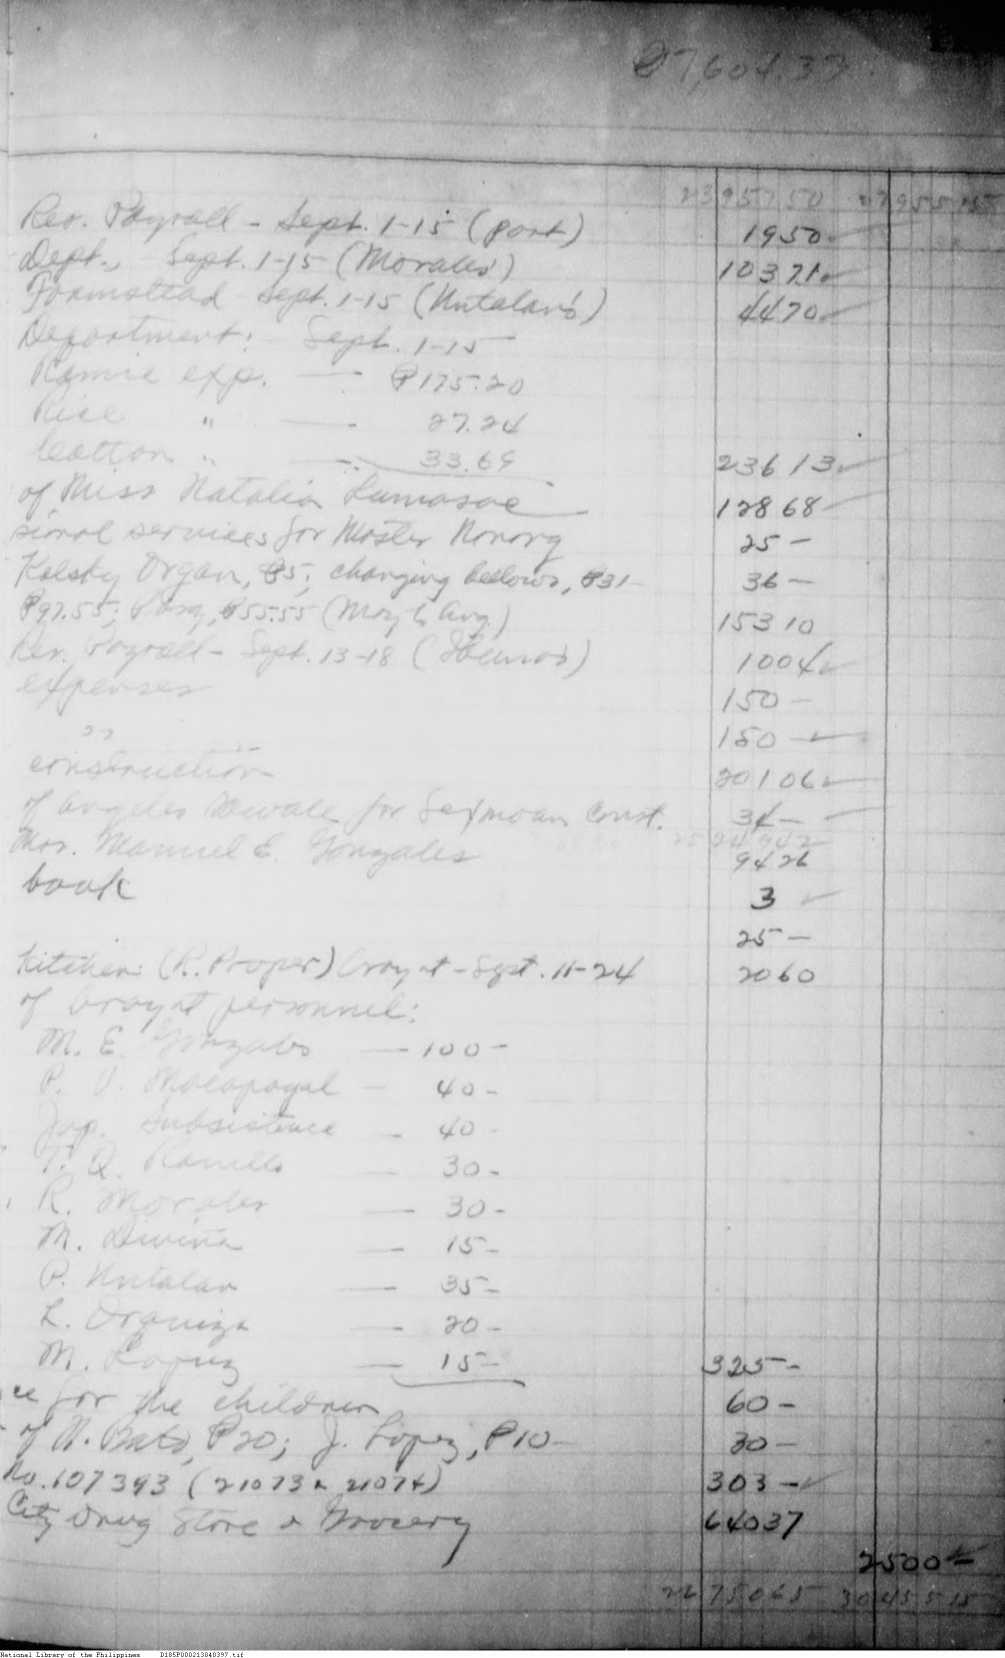 ₱7,604.37
2395750 2795515
Rev. Payroll - Sept. 1-15 (part) 1950
Dept., Sept. 1-15 (Morales) 10371
Sept. 1-15 (Nutalan's) 4470
Department: Sept. 1-15
Ramie exp. — ₱175.20
Rice " — 27.24
Cotton " — 33.69 23613
of Miss Natalia Lumasac 12868
sional services for Master Nonong 25 -
Kolsky Organ, ₱5; changing bellows, ₱31- 36 -
₱97.55; ₱55.55 (May & Aug.) 15310
Rev. Payroll - Sept. 13-18 1004
expenses 150 -
" 150 -
construction 20106
of Angeles for const. 34 -
2524942
Mrs. Manuel E. Gonzales 9426
book 3
25 -
Kitchen (R. Proper) - Sept. 11-24 2060
of personnel:
M. E. Gonzales — 100 -
P. V. Macapagal - 40 -
Jap. Subsistence - 40 -
T. Q. — 30 -
R. Morales — 30 -
M. Divina — 15 -
P. Nutalan — 35 -
L. Organiza — 20 -
M. Lopez — 15 - 325 -
ce for the children 60 -
of N. ₱20; J. Lopez, ₱10 - 30 -
No. 607393 (21073 & 21074) 303 -
City Drug Store & Grocery 64037
2500 -
2675065 3045515
National Library of the Philippines D185P000213040397.tif